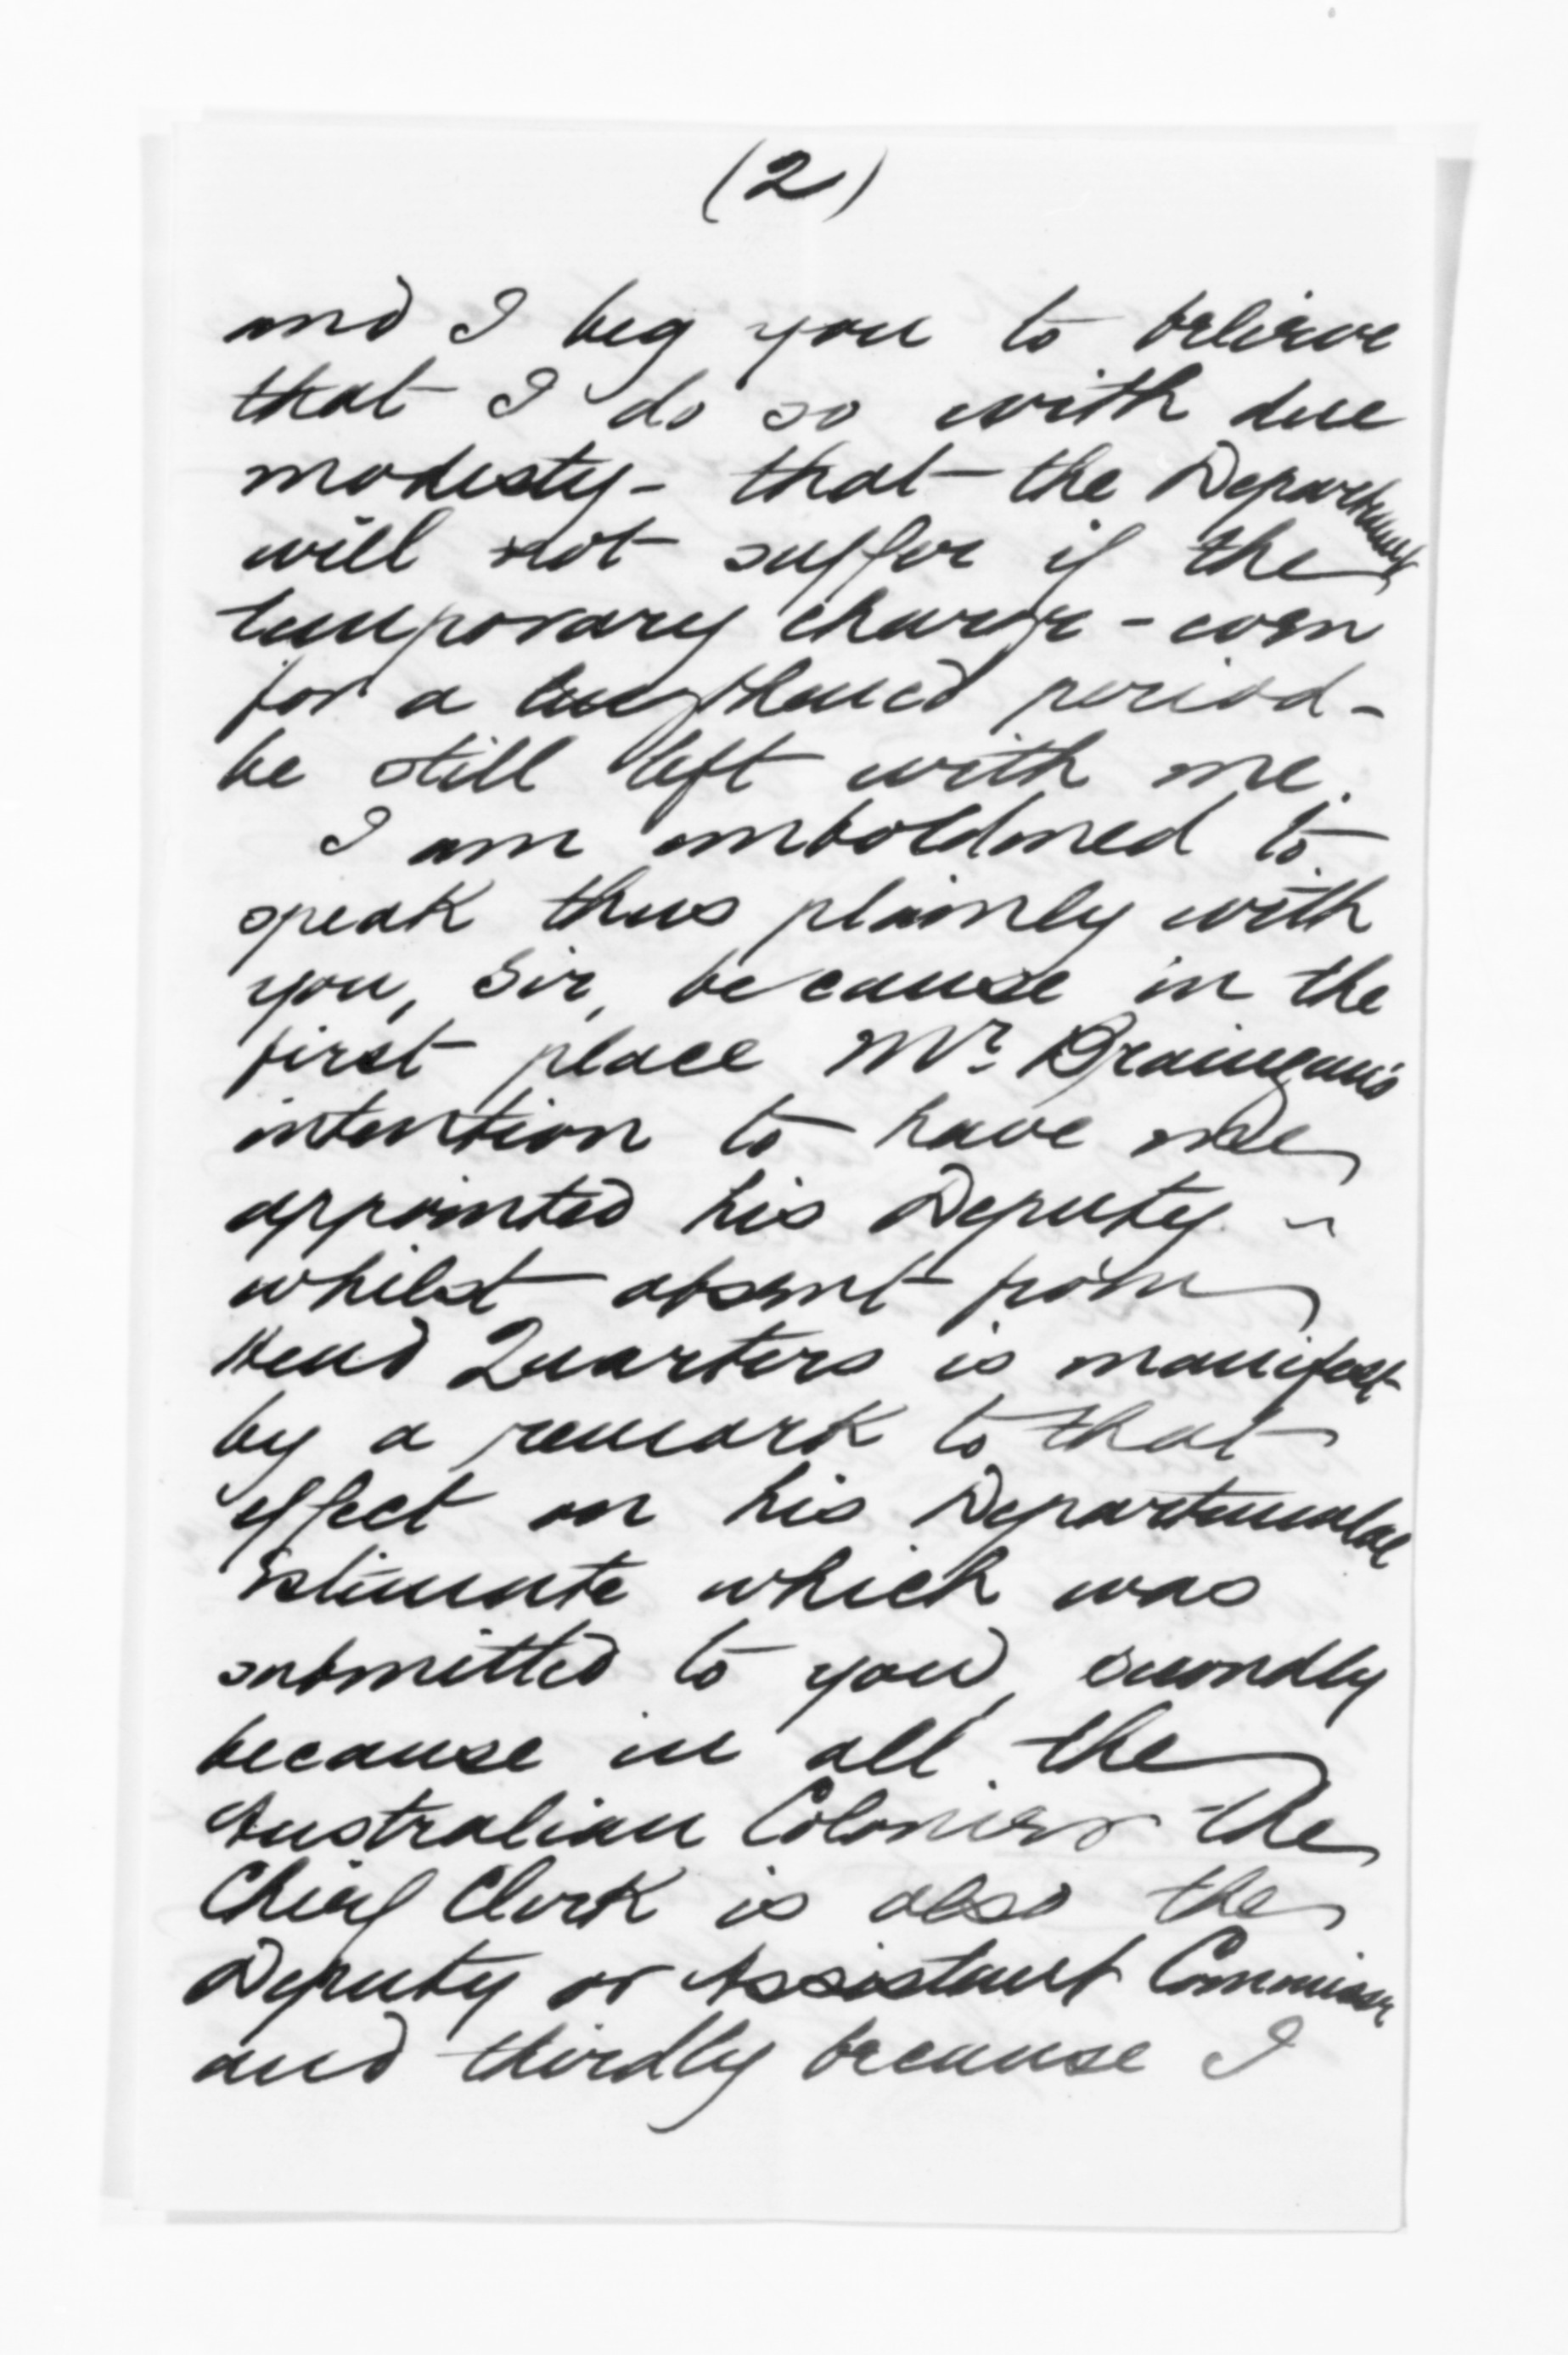 (2)
and I beg you to believe
that I do so with due
modesty - that the Department
will not suffer if the
temporary charge - even
for a lengthened period -
be still left with me.
I am emboldened to
speak thus plainly with
you, Sir, because in the
first place Mr. Branigan's
intention to have me
appointed his Deputy
whilst absent from
Head Quarters is manifest
by a remark to that
effect on his Departmental
Estimate which was
submitted to you, secondly
because in all the
Australian Colonies the
Chief Clerk is also the
Deputy or Assistant Commissr
and thirdly because I